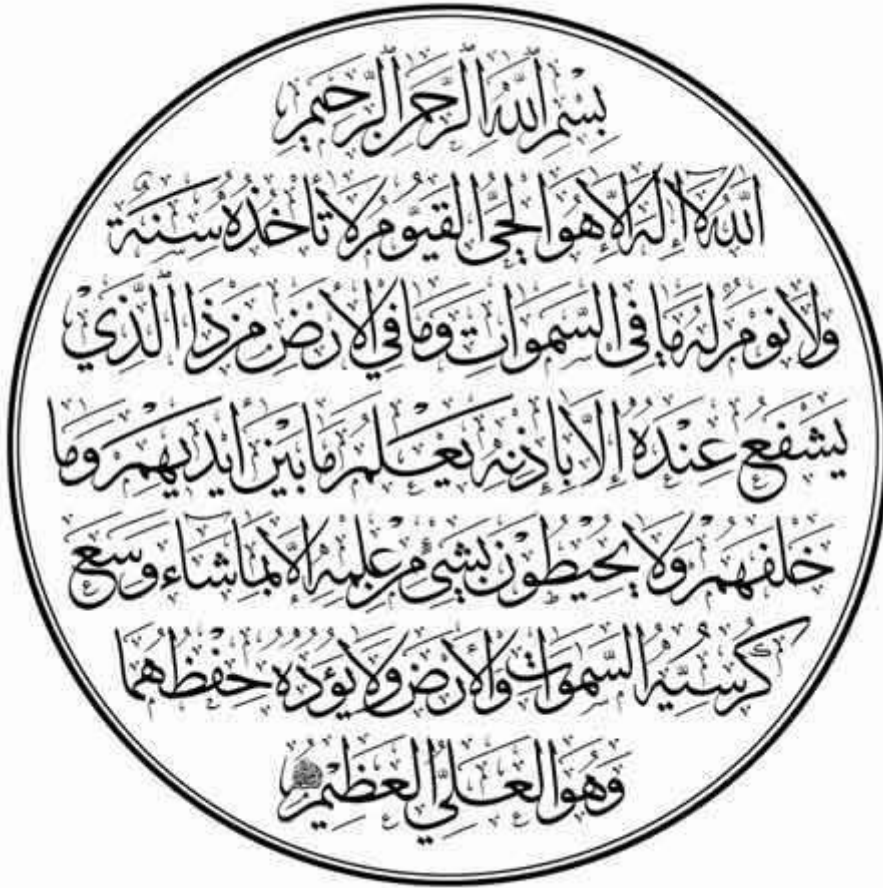 بِسْمِ اللهِ الرَّحْمنِ الرَّحِيمِ
اَللهُ لَا إِلَهَ إِلَّا هُوَ الْحَيُّ الْقَيُّومُ لَا تَأْخُذُهُ سِنَةٌ
وَلَا نَوْمٌ لَهُ مَا فِي السَّمَوَاتِ وَمَا فِي الْأَرْضِ مَنْ ذَا الَّذِي
يَشْفَعُ عِنْدَهُ إِلَّا بِإِذْنِهِ يَعْلَمُ مَا بَيْنَ أَيْدِيهِمْ وَمَا
خَلْفَهُمْ وَلَا يُحِيطُونَ بِشَيْءٍ مِنْ عِلْمِهِ إِلَّا بِمَا شَاءَ وَسِعَ
كُرْسِيُّهُ السَّمَوَاتِ وَالْأَرْضَ وَلَا يَؤُدُهُ حِفْظُهُمَا
وَهُوَ الْعَلِيُّ الْعَظِيمُ